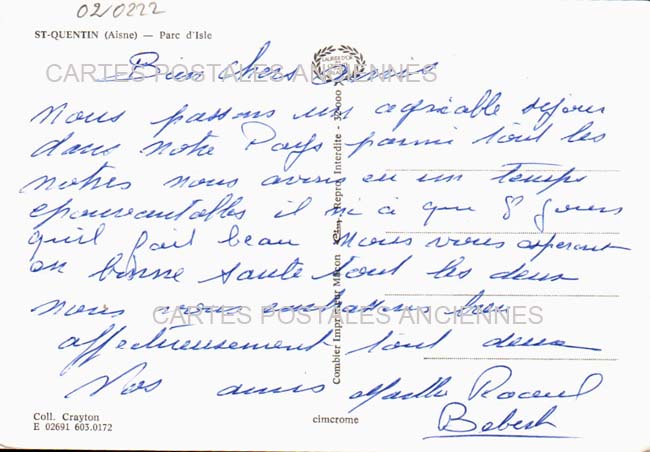 02/0222
ST-QUENTIN (Aisne) — Parc d'Isle
Bien chers amis
CARTES POSTALES ANCIENNES
nous passons un agréable séjour
dans notre Pays parmi tout les
notres nous avons eu un temps
epouvantables il ni a que 8 jours
quil fait beau nous vous esperont
en bonne sante tout les deux
nous vous embrassons bien
CARTES POSTALES ANCIENNES
affectueusement tout deux
Vos amis Raoul
Babeth
Combier Imprimeur Macon
Repro. Interdite
Coll. Crayton
E 02691 603.0172
cimcrome